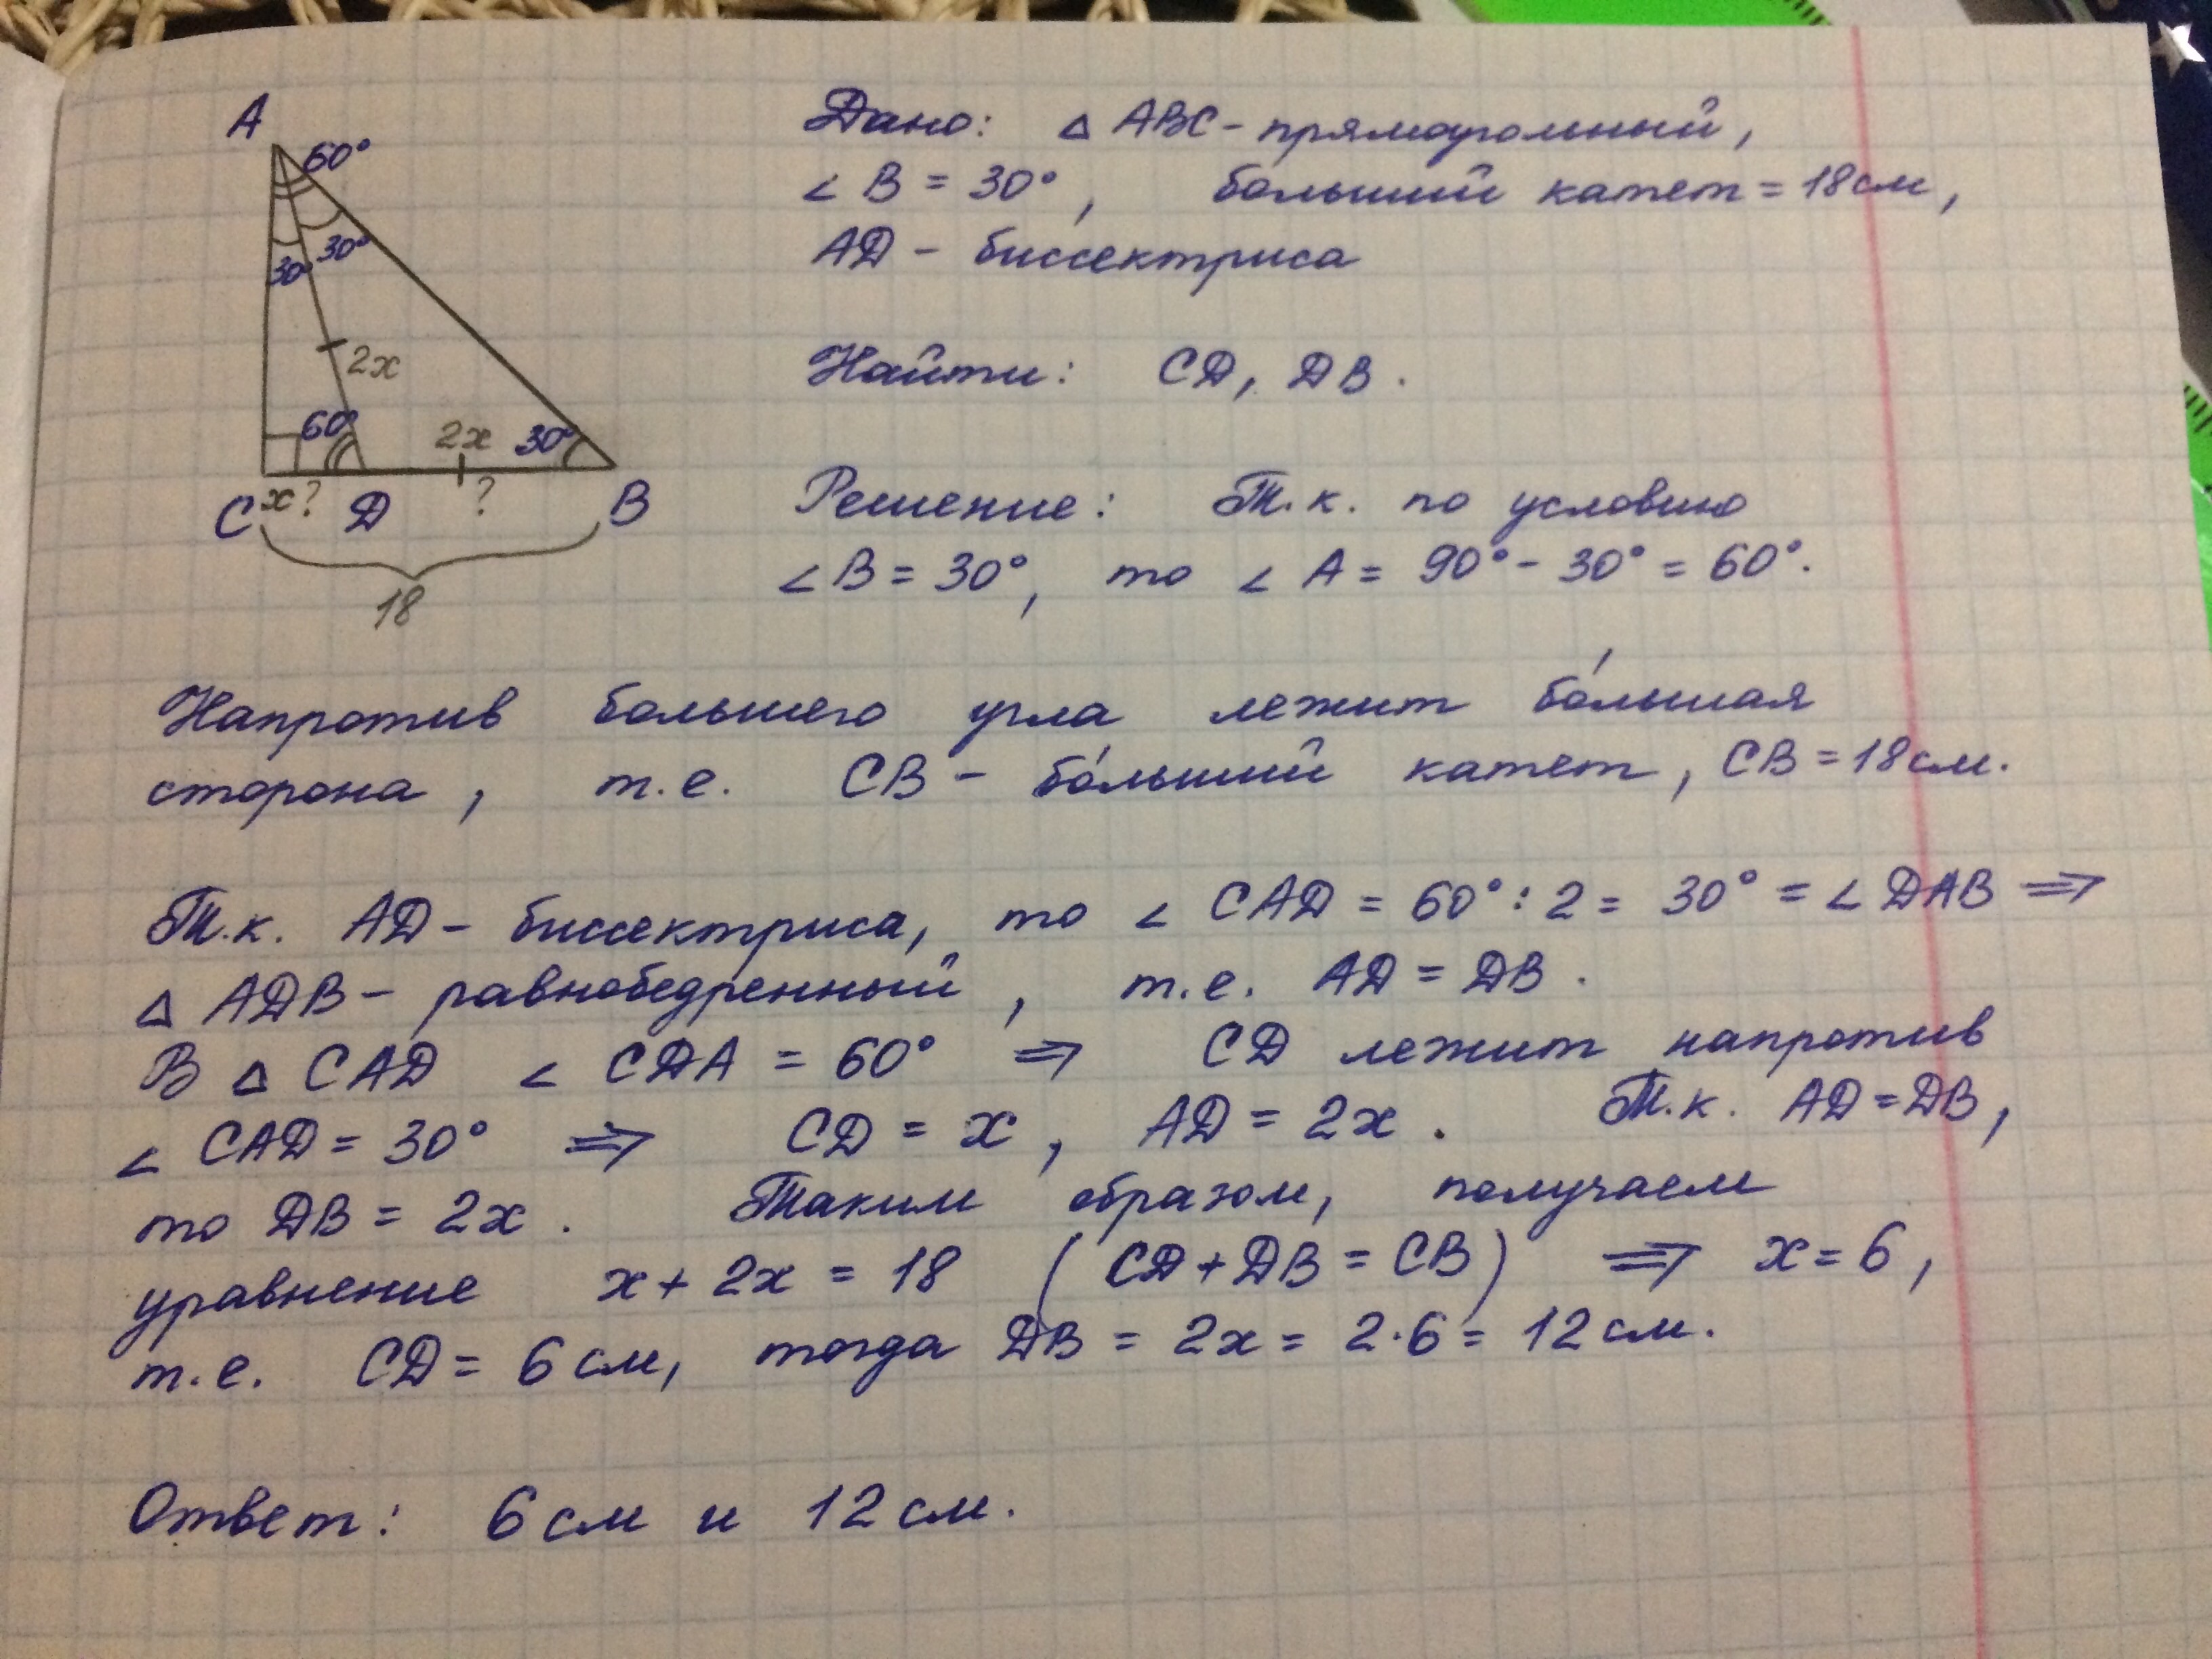 A
60°
30°
30°
2x
60°
2x
30°
C x? D ? B
18
Дано: △ ABC - прямоугольный,
∠ B = 30°, больший катет = 18 см,
AD - биссектриса
Найти: CD, DB.
Решение: Т.к. по условию
∠ B = 30°, то ∠ A = 90° - 30° = 60°.
Напротив большего угла лежит бо́льшая
сторона, т.е. CB - бо́льший катет, CB = 18 см.
Т.к. AD - биссектриса, то ∠ CAD = 60° : 2 = 30° = ∠ DAB ⇒
△ ADB - равнобедренный, т.е. AD = DB.
В △ CAD ∠ CDA = 60° ⇒ CD лежит напротив
∠ CAD = 30° ⇒ CD = x, AD = 2x. Т.к. AD = DB,
то DB = 2x. Таким образом, получаем
уравнение x + 2x = 18 (CD + DB = CB) ⇒ x = 6,
т.е. CD = 6 см, тогда DB = 2x = 2·6 = 12 см.
Ответ: 6 см и 12 см.